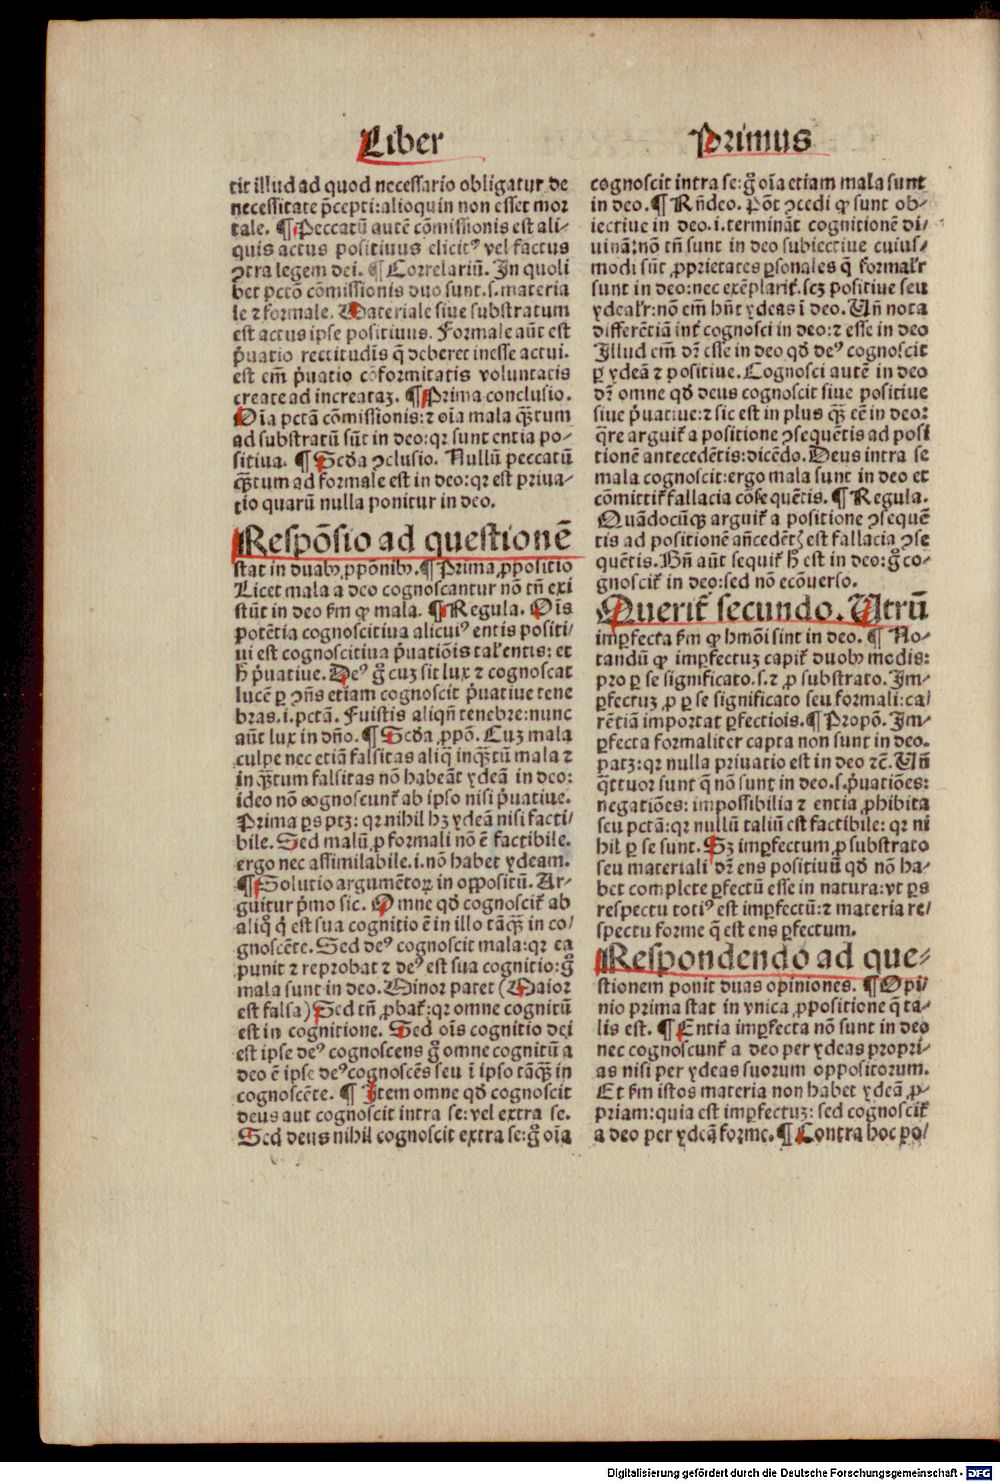 Liber Primus
tit illud ad quod necessario obligatur de
necessitate p̄cepti:alioquin non esset mor
tale. ¶ Peccatū autē cōmissionis est ali⸗
quis actus positiuus elicitꝰ vel factus
ꝯtra legem dei. ¶ Correlariū. In quoli
bet pctō cōmissionis duo sunt.s.materia
le ⁊ formale. Materiale siue substratum
est actus ipse positiuus. Formale aūt est
p̄uatio rectitudis q̄ deberet inesse actui.
est em̄ p̄uatio cōformitatis voluntatis
create ad increataꝫ. ¶ Prima conclusio.
Oīa pctā cōmissionis:⁊ oīa mala qꝫtum
ad substratū sūt in deo:qꝛ sunt entia po⸗
sitiua. ¶ Scd̄a ꝯclusio. Nullū peccatū
qꝫtum ad formale est in deo:qꝛ est priua⸗
tio quarū nulla ponitur in deo.
Respōsio ad questionē
stat in duabꝰ ꝓpōnibꝰ.¶ Prima ꝓpositio
Licet mala a deo cognoscantur nō tn̄ exi
stūt in deo ẜm ꝙ mala. ¶ Regula. Oīs
potētia cognoscitiua alicuiꝰ entis positi/
ui est cognoscitiua p̄uatiōis tal̓ entis: et
h̄ p̄uatiue. Deꝰ g̊ cuꝫ sit lux ⁊ cognoscat
lucē ꝑ ꝯn̄s etiam cognoscit p̄uatiue tene
bras.i.pctā. Fuistis aliqn̄ tenebre:nunc
aūt lux in dn̄o. ¶ Scd̄a ꝓpō. Cuꝫ mala
culpe nec etiā falsitas aliq̄ inqꝫtū mala ⁊
in qꝫtum falsitas nō habeāt ydeā in deo:
ideo nō cognoscunt̄ ab ipso nisi p̄uatiue.
Prima ꝑs ptꝫ: qꝛ nihil hꝫ ydeā nisi facti/
bile. Sed malū ꝓ formali nō ē factibile.
ergo nec assimilabile.i.nō habet ydeam.
¶ Solutio argumētoꝝ in oppositū. Ar⸗
guitur p̄mo sic. Omne qd̄ cognoscit̄ ab
aliq̊ q̄ est sua cognitio ē in illo tāqꝫ in co/
gnoscēte. Sed deꝰ cognoscit mala:qꝛ ea
punit ⁊ reprobat ⁊ deꝰ est sua cognitio:g̊
mala sunt in deo. Minor patet (Maior
est falsa) Sed tn̄ ꝓbat̄: qꝛ omne cognitū
est in cognitione. Sed oīs cognitio dei
est ipse deꝰ cognoscens g̊ omne cognitū a
deo ē ipse deꝰ cognoscēs seu ī ipso tāqꝫ in
cognoscēte. ¶ Item omne qd̄ cognoscit
deus aut cognoscit intra se: vel extra se.
Sed deus nihil cognoscit extra se:g̊ oīa
cognoscit intra se: g̊ oīa etiam mala sunt
in deo. ¶ Rn̄deo. Pōt ꝯcedi ꝙ sunt ob⸗
iectiue in deo.i.termināt cognitionē di/
uinā:nō tn̄ sunt in deo subiectiue cuius/
modi sūt ꝓprietates ꝑsonales q̄ formal̓r
sunt in deo:nec exēplarit̄.scꝫ positiue seu
ydeal̓r:nō em̄ hn̄t ydeas ī deo. Vn̄ nota
differētiā int̄ cognosci in deo:⁊ esse in deo
Illud em̄ dr̄ esse in deo qd̄ deꝰ cognoscit
ꝑ ydeā ⁊ positiue. Cognosci autē in deo
dr̄ omne qd̄ deus cognoscit siue positiue
siue p̄uatiue:⁊ sic est in plus qꝫ eē in deo:
q̄re arguit̄ a positione ꝯsequētis ad posi
tionē antecedētis:dicēdo. Deus intra se
mala cognoscit:ergo mala sunt in deo et
cōmittit̄ fallacia cōsequētis. ¶ Regula.
Quādocūqꝫ arguit̄ a positione ꝯsequē
tis ad positionē an̄cedētꝭ est fallacia ꝯse
quētis. Bn̄ aūt sequit̄ h̄ est in deo: g̊ co⸗
gnoscit̄ in deo:sed nō ecōuerso.
Querit̄ secundo. Utrū
imꝑfecta ẜm ꝙ hmōi sint in deo. ¶ No⸗
tandū ꝙ imꝑfectuꝫ capit̄ duobꝰ modis:
pro ꝑ se significato.s.⁊ ꝓ substrato. Im⸗
ꝑfectuꝫ ꝓ ꝑ se significato seu formali:ca/
rētiā importat ꝑfectiōis. ¶ Propō. Im⸗
ꝑfecta formaliter capta non sunt in deo.
patꝫ: qꝛ nulla priuatio est in deo ⁊c̄. Vn̄
q̄ttuor sunt q̄ nō sunt in deo.s.p̄uatiōes:
negatiōes: impossibilia ⁊ entia ꝓhibita
seu pctā: qꝛ nullū taliū est factibile: qꝛ ni
hil ꝑ se sunt. Sꝫ imꝑfectum ꝓ substrato
seu materiali dr̄ ens positiuū qd̄ nō ha⸗
bet complete ꝑfectū esse in natura:vt ꝑs
respectu totiꝰ est imꝑfectū:⁊ materia re/
spectu forme q̄ est ens ꝑfectum.
Respondendo ad que⸗
stionem ponit duas opiniones. ¶ Opi/
nio prima stat in vnica ꝓpositione q̄ ta⸗
lis est. ¶ Entia imꝑfecta nō sunt in deo
nec cognoscunt̄ a deo per ydeas propri⸗
as nisi per ydeas suorum oppositorum.
Et ẜm istos materia non habet ydeā ꝓ⸗
priam:quia est imꝑfectuꝫ: sed cognoscit̄
a deo per ydeā forme. ¶ Contra hoc po/
Digitalisierung gefördert durch die Deutsche Forschungsgemeinschaft - DFG